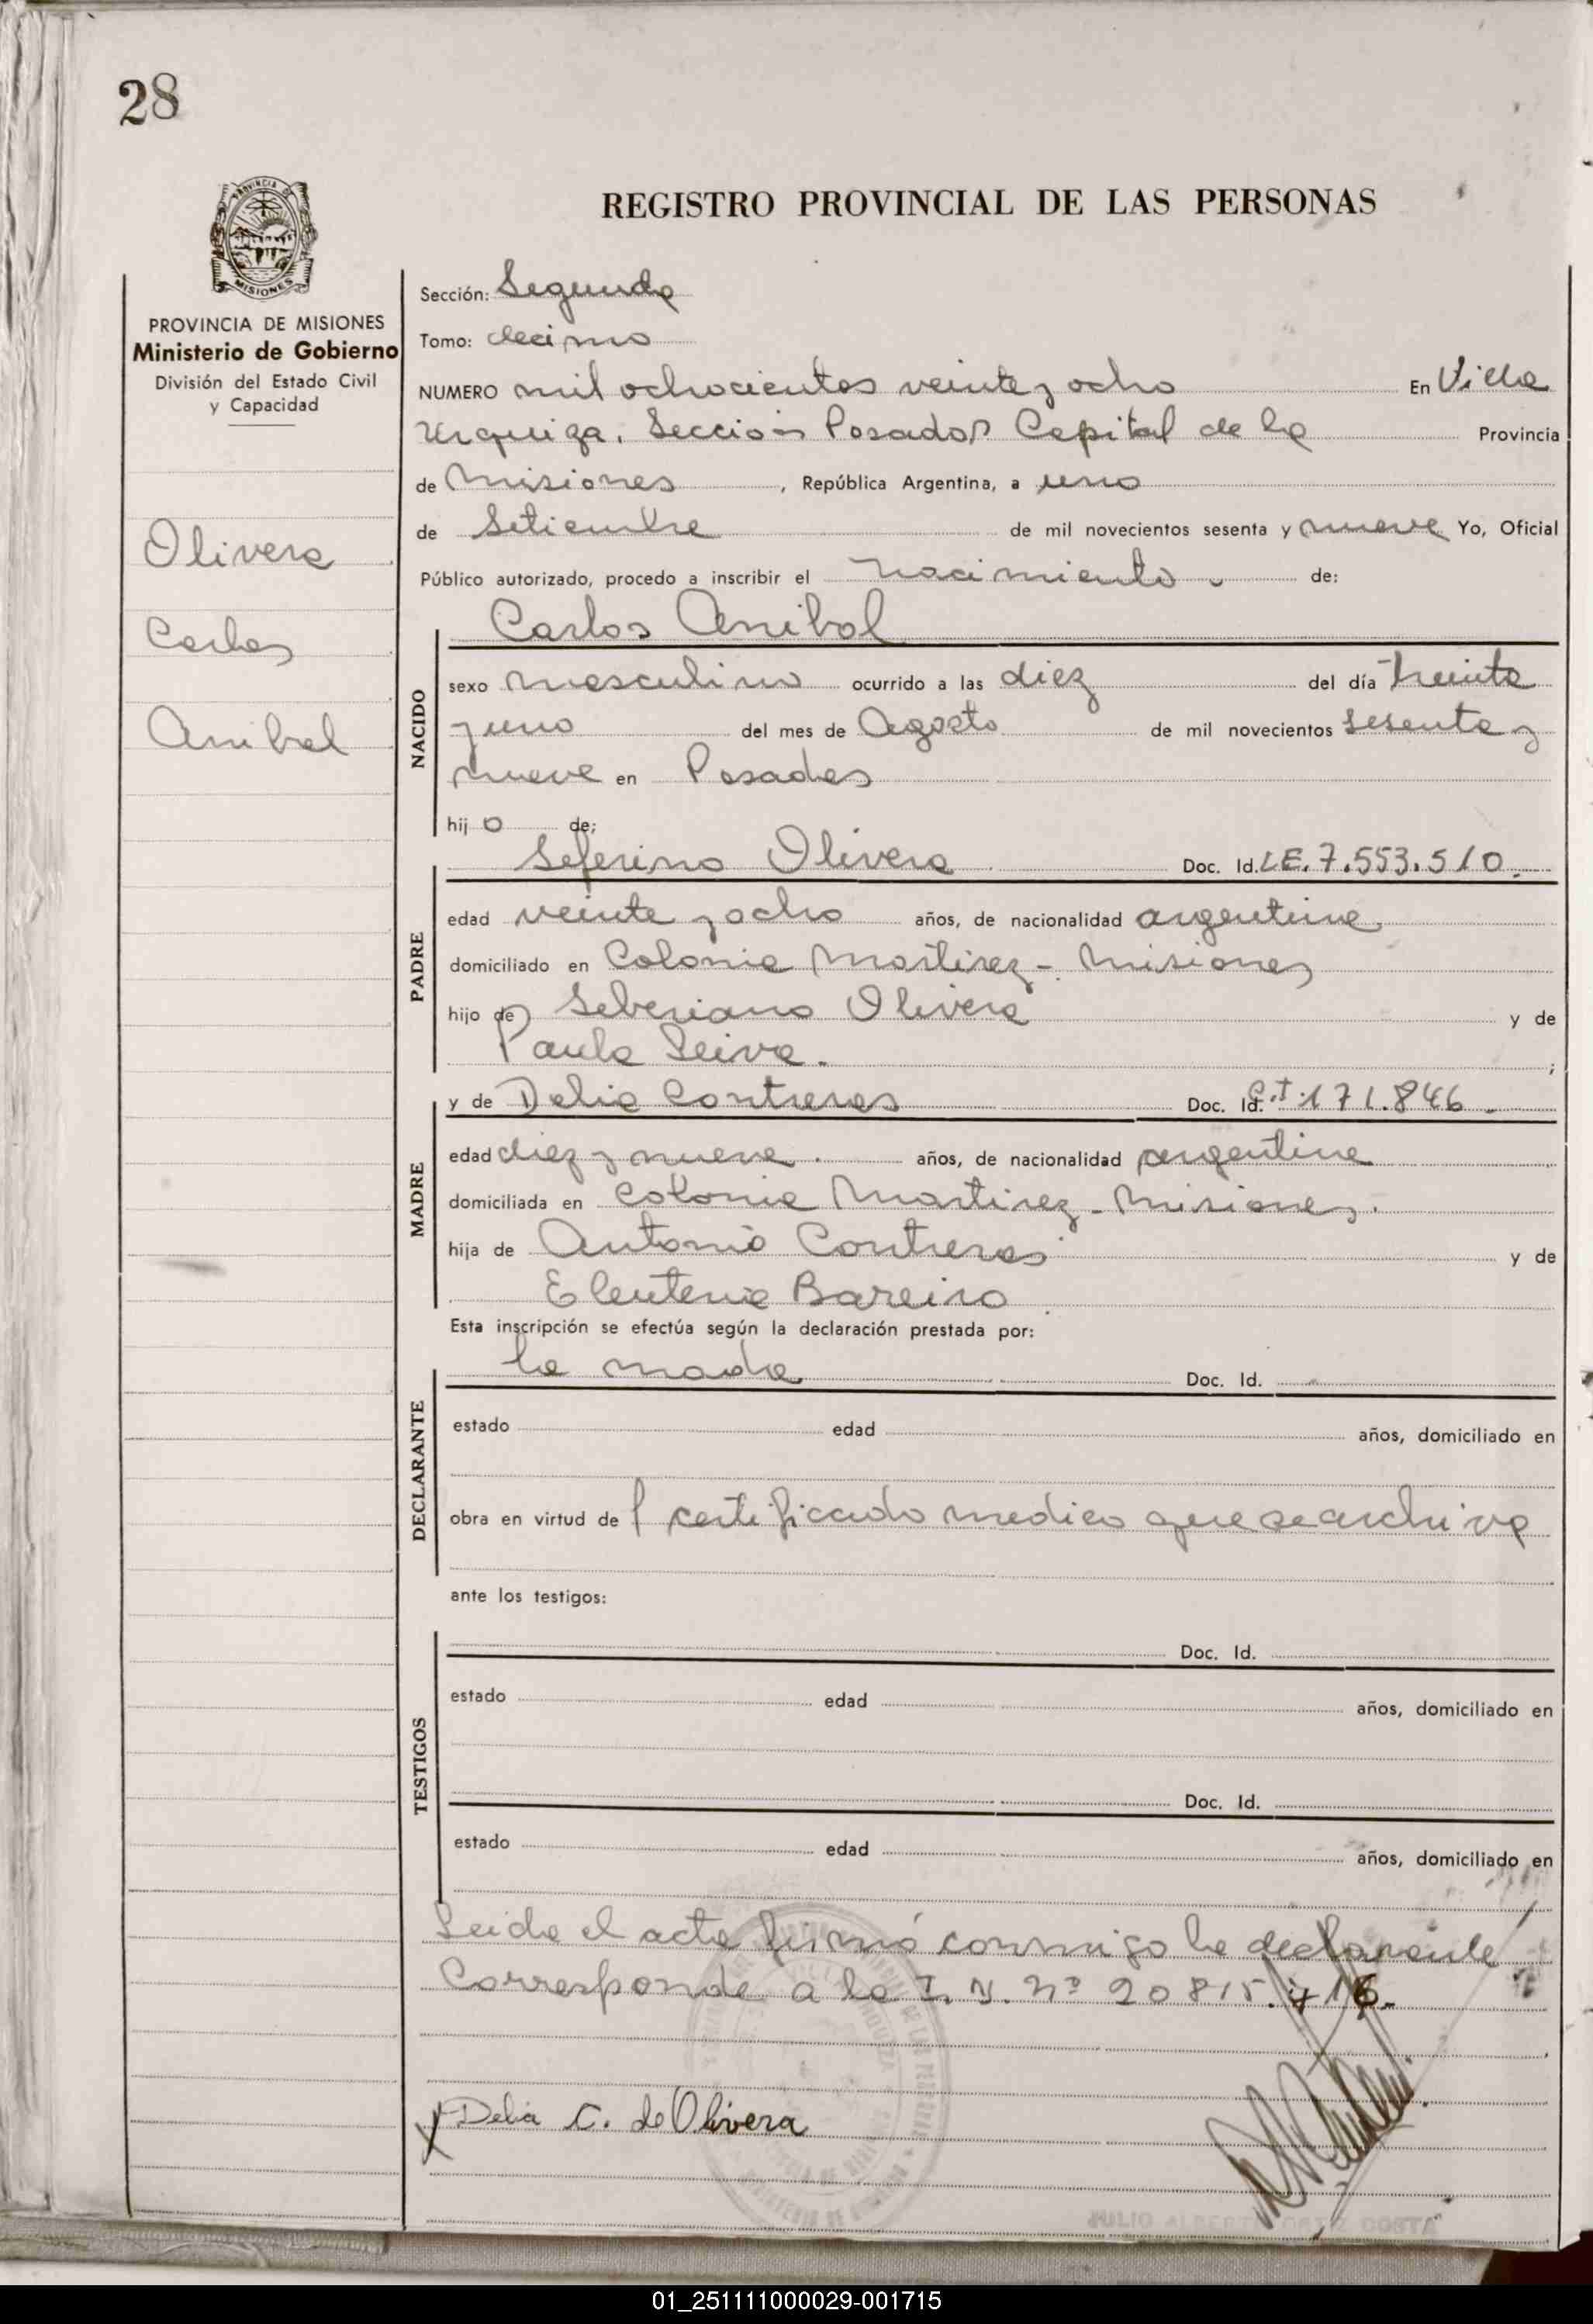 28
PROVINCIA DE
MISIONES
REGISTRO PROVINCIAL DE LAS PERSONAS
PROVINCIA DE MISIONES
Ministerio de Gobierno
División del Estado Civil
y Capacidad
Olivera
Carlos
Anibal
Sección: Segunda
Tomo: decimo
NUMERO mil ochocientos veinte y ocho En Villa
Urquiza, Sección Posadas Capital de la Provincia
de Misiones, República Argentina, a uno
de Setiembre de mil novecientos sesenta y nueve Yo, Oficial
Público autorizado, procedo a inscribir el nacimiento de:
Carlos Anibal
NACIDO
sexo masculino ocurrido a las diez del día treinta
y uno del mes de Agosto de mil novecientos sesenta y
nueve en Posadas
hijo de;
Seferino Olivera Doc. Id. LE. 7.553.510.
PADRE
edad veinte y ocho años, de nacionalidad argentina
domiciliado en Colonia Martirez - Misiones
hijo de Seberiano Olivera y de
Paula Leiva. ;
y de Delia Contreras Doc. Id. C.I 171.846
MADRE
edad diez y nueve. años, de nacionalidad argentina
domiciliada en Colonia Martirez - Misiones.
hija de Antonio Contreras y de
Eleuteria Bareiro
Esta inscripción se efectúa según la declaración prestada por:
la madre Doc. Id.
DECLARANTE
estado edad años, domiciliado en
obra en virtud de l certificado medico que se archiva
ante los testigos:
Doc. Id.
TESTIGOS
estado edad años, domiciliado en
Doc. Id.
estado edad años, domiciliado en
Leida el acta firmó conmigo la declarante
Corresponde a la I. N. nº 20815.716.
Delia C. de Olivera
JULIO ALBERTO ORTIZ COSTA
01_251111000029-001715